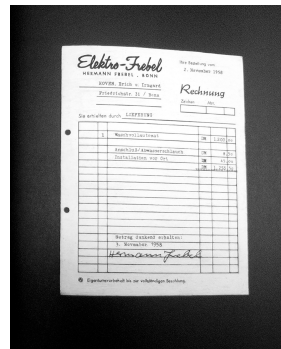 Elektro-Frebel
HERMANN FREBEL · BONN
Ihre Bestellung vom
2. November 1958
HOVEN, Erich u. Irmgard
Friedrichstr. 31 / Bonn
Rechnung
Zeichen Abt.
Sie erhielten durch LIEFERUNG
1 Waschvollautomat DM
Anschluß/Abwasserschlauch DM
Installation vor Ort DM
DM
Betrag dankend erhalten:
3. November 1958
Hermann Frebel
Eigentumsvorbehalt bis zur vollständigen Bezahlung.